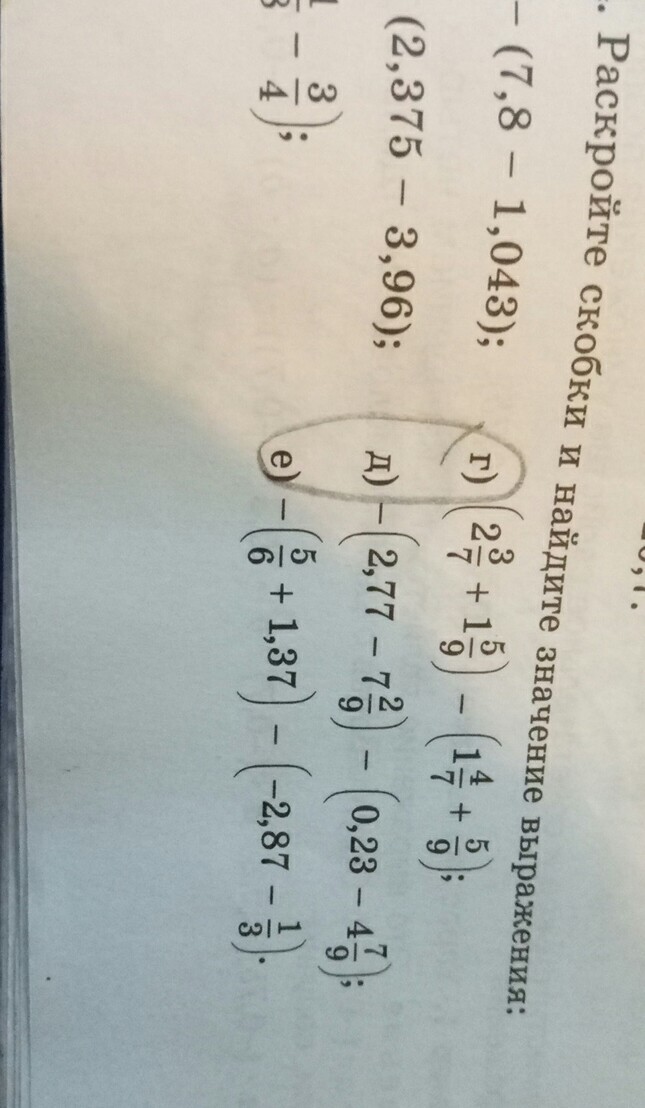 . Раскройте скобки и найдите значение выражения:
− (7,8 − 1,043); г) (2 3/7 + 1 5/9) − (1 4/7 + 5/9);
(2,375 − 3,96); д) −(2,77 − 7 2/9) − (0,23 − 4 7/9);
− 3/4); е) −(5/6 + 1,37) − (−2,87 − 1/3).